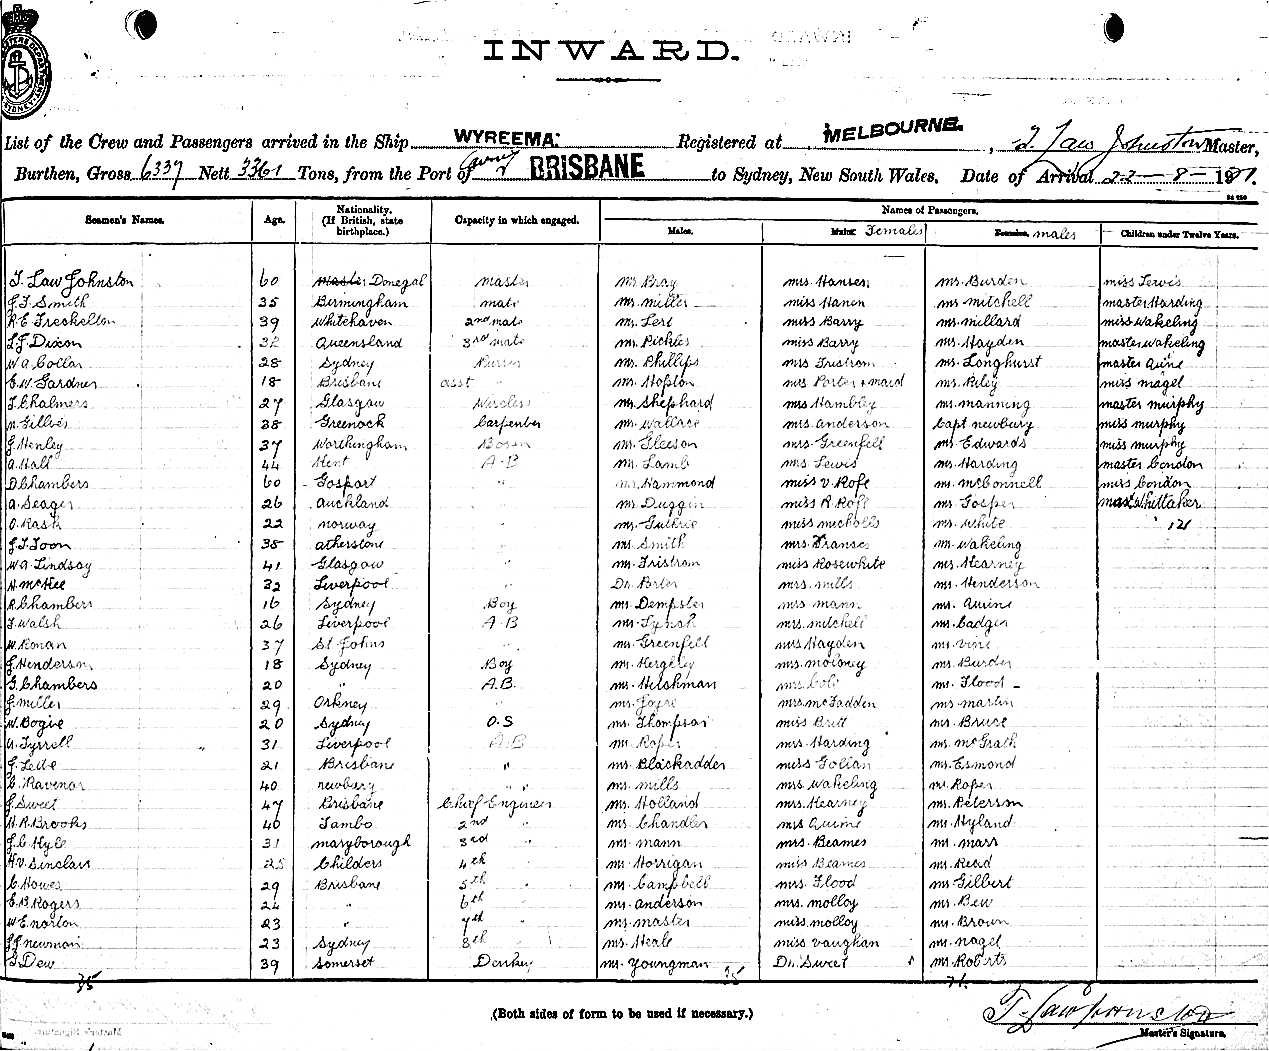 INWARD.
List of the Crew and Passengers arrived in the Ship WYREEMA. Registered at MELBOURNE. , T. Law Johnston Master,
Burthen, Gross 6337 Nett 3361 Tons, from the Port of BRISBANE to Sydney, New South Wales, Date of Arrival 22-8-
Seamen's Names. Age. Nationality. (If British, state birthplace.) Capacity in which engaged. Names of Passengers.
Males. Males Females Females males Children under Twelve Years.
T. Law Johnston 60 master Donegal master mr Bray mrs Hansen mr Burden miss Lewis
J.T. Smith 35 Birmingham mate mr miller miss Hansen mr mitchell master Harding
R.E. Freckelton 39 Whitehaven 2nd mate mr miss Barry mr millard miss Wakeling
Dixon 32 Queensland 3rd mate mr Pickles miss Barry mr Hayden master Wakeling
W.A. Collar 28 Sydney Purser mr Phillips mrs Tristrom mr Longhurst master Quine
E.W. Gardner 18 Brisbane asst " mr Hopton mrs Porter + maid mr Riley miss nagel
T. Chalmers 27 Glasgow Wireless mr Shephard mrs Hambley mr manning master murphy
N. Gillies 38 Greenock Carpenter mr Wallace mrs anderson Capt newbury miss murphy
J. Henley 37 Worthingham Bosun mr Gleeson mrs Greenfell mr Edwards miss murphy
A. Hall 44 Kent A-B mr Lamb mrs Lewis mr Harding master Condon
D. Chambers 60 Gosport " mr Hammond miss V. Rofe mr McConnell miss Condon
A. Seager 26 auckland " mr Duggin miss R. Rofe mr Gosper mast Whittaker
O. Rask 22 norway " mr Guthrie miss nicholls mr White 12
J.T. Toon 38 atherstone " mr Smith mrs Franses mr Wakeling
W.A. Lindsay 41 Glasgow " mr Tristrom miss Rosewhite mr Kearney
H. McKee 32 Liverpool " Dr. Porter mrs mills mr Henderson
R. Chambers 16 Sydney Boy mr Dempster mrs mann mr Quine
T. Walsh 26 Liverpool A-B mr Lynch mrs mitchell mr Cadger
W. Ronan 37 St Johns " mr Greenfell mrs Hayden mr Vine
J. Henderson 18 Sydney Boy mr Hergeley mrs moloney mr Burder
G. Chambers 20 " A.B. mr Helshman mrs Cole mr Flood
J. Miller 29 Orkney " mr Joyce mrs McFadden mr martin
W. Bogie 20 Sydney O.S mr Thompson miss Britt mr Bruce
A. Tyrrell 31 Liverpool A-B mr Roper mrs Harding mr McGrath
21 Brisbane " mr Blackadder miss Golian mr Esmond
C. Ravenor 40 newbery " mr mills mrs Wakeling mr Roper
J. Sweet 47 Brisbane Chief Engineer mr Holland mrs Kearney mr Peterson
H.R. Brooks 40 Tambo 2nd " mr Chandler mrs Quine mr Hyland
J.C. Kyle 31 maryborough 3rd mr mann mrs Beames mr marr
H.V. Sinclair 25 Childers 4th " mr Horrigan miss Beames mr Read
C. Howes 29 Brisbane 5th mr Campbell mrs Flood mr Gilbert
E.B. Rogers 24 " 6th " mr anderson mrs molloy mr Bew
W.E. norton 23 " 7th " mr master miss molloy mr Brown
newman 23 Sydney 8th " mr Heale miss Vaughan mr nagel
Dew 39 Somerset Donkey mr Youngman Dr. Sweet mr Roberts
35 35
(Both sides of form to be used if necessary.)
T. Law Johnston
Master's Signature.